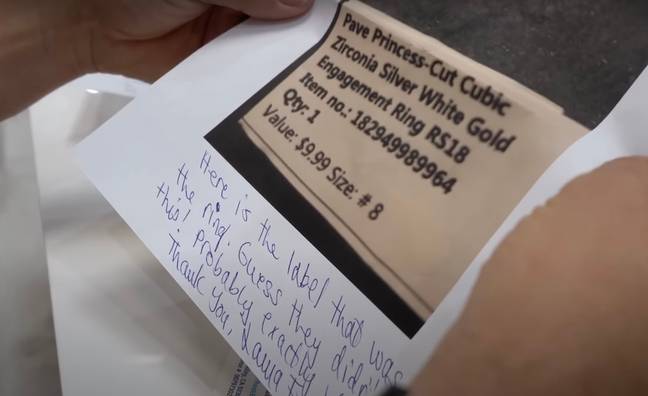 Pave Princess-Cut Cubic
Zirconia Silver White Gold
Engagement Ring RS18
Item no.: 182949989964
Qty: 1
Value: $9.99 Size: # 8
Here is the label that was
the ring. Guess they didn't
this! Probably exactly
Thank you, Laura